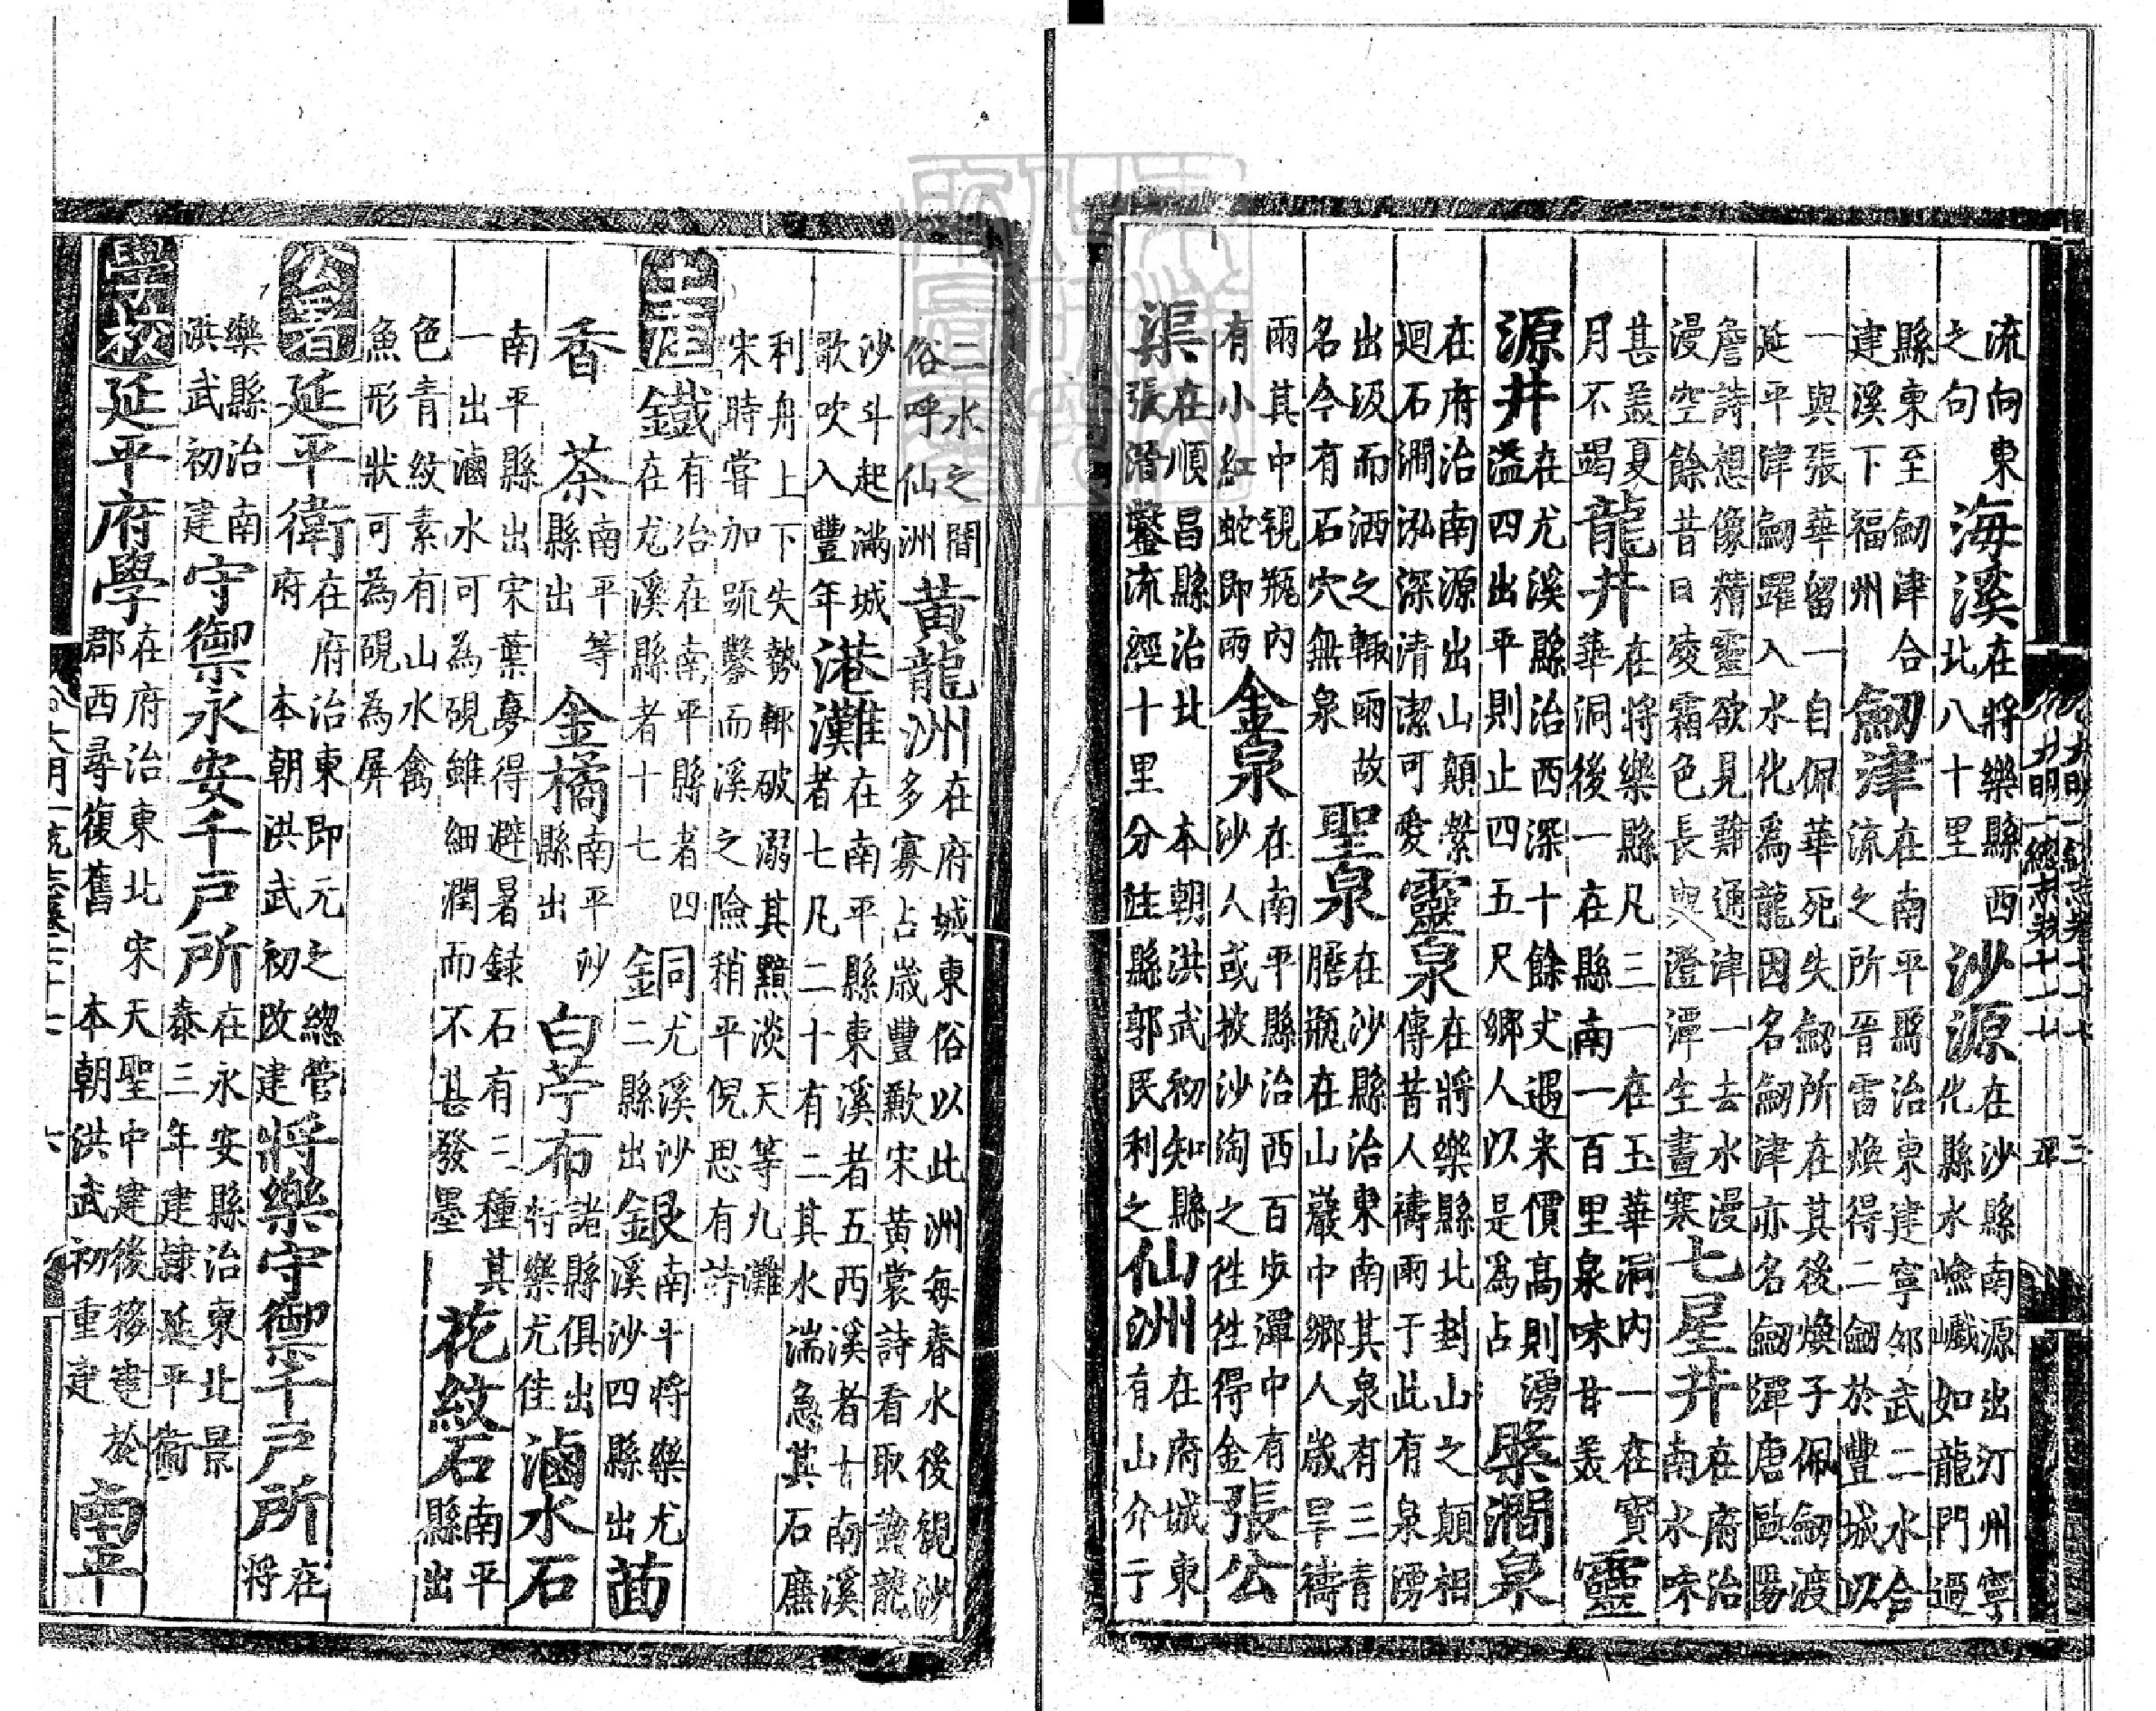 流向東之句海溪在將樂縣西北八十里沙源在沙縣南源出汀州寧化縣水嶮巇如龍門過
縣東至劒津合建溪下福州劒津在南平縣治東建寧邵武二水合流之所晉雷煥得二劒於豐城以
一與張華留一自佩華死失劒所在其後煥子佩劒渡延平津劒躍入水化爲龍因名劒津亦名劒潭唐歐陽
詹詩想像精靈欲見難通津一去水漫漫空餘昔日凌霜色長與澄潭生晝寒七星井在府治南水味
甚羙夏月不竭龍井在將樂縣凡三一在玉華洞内一在寳華洞後一在縣南一百里泉味甘羙靈
源井在尤溪縣治西深十餘丈遇米價高則湧溢四出平則止四五尺鄉人以是爲占槩澗泉
在府治南源出山顛縈迴石澗泓深清潔可愛靈泉在將樂縣北封山之顛相傳昔人禱雨于此有泉湧
出汲而洒之輙雨故名今有石穴無泉聖泉在沙縣治東南其泉有三青膽瓶在山巖中鄉人歲旱禱
雨其中視瓶内有小紅蛇即雨金泉在南平縣治西百步潭中有沙人或披沙淘之徃徃得金張公
渠在順昌縣治北本朝洪武初知縣張濳鑿流經十里分註縣郭民利之仙洲在府城東有山介于
二水之間俗呼仙洲黃龍洲在府城東俗以此洲每春水後視沙多寡占歲豐歉宋黃裳詩看取黃龍
沙斗起滿城歌吹入豐年港灘在南平縣東溪者五西溪者十南溪者七凡二十有二其水湍急其石廉
利舟上下失勢輒破溺其黯淡天等九灘宋時嘗加䟽鑿而溪之險稍平倪思有詩
土產鐵有冶在南平縣者四在尤溪縣者十七銅尤溪沙金二縣出銀南斗將樂尤金溪沙四縣出茴
香茶南平等縣出金橘南平沙縣出白苧布諸縣俱出將樂尤佳滷水石
南平縣出宋葉夢得避暑録石有三種其一出滷水可為硯雖細潤而不甚發墨花紋石南平縣出
色青紋素有山水禽魚形狀可為硯為屏
公署延平衛在府治東即元之總管府本朝洪武初改建將樂守禦千戶所在將
樂縣治南洪武初建守禦永安千戶所在永安縣治東北景泰三年建隷延平衞
學校延平府學在府治東北宋天聖中建後移建於郡西尋復舊本朝洪武初重建南平